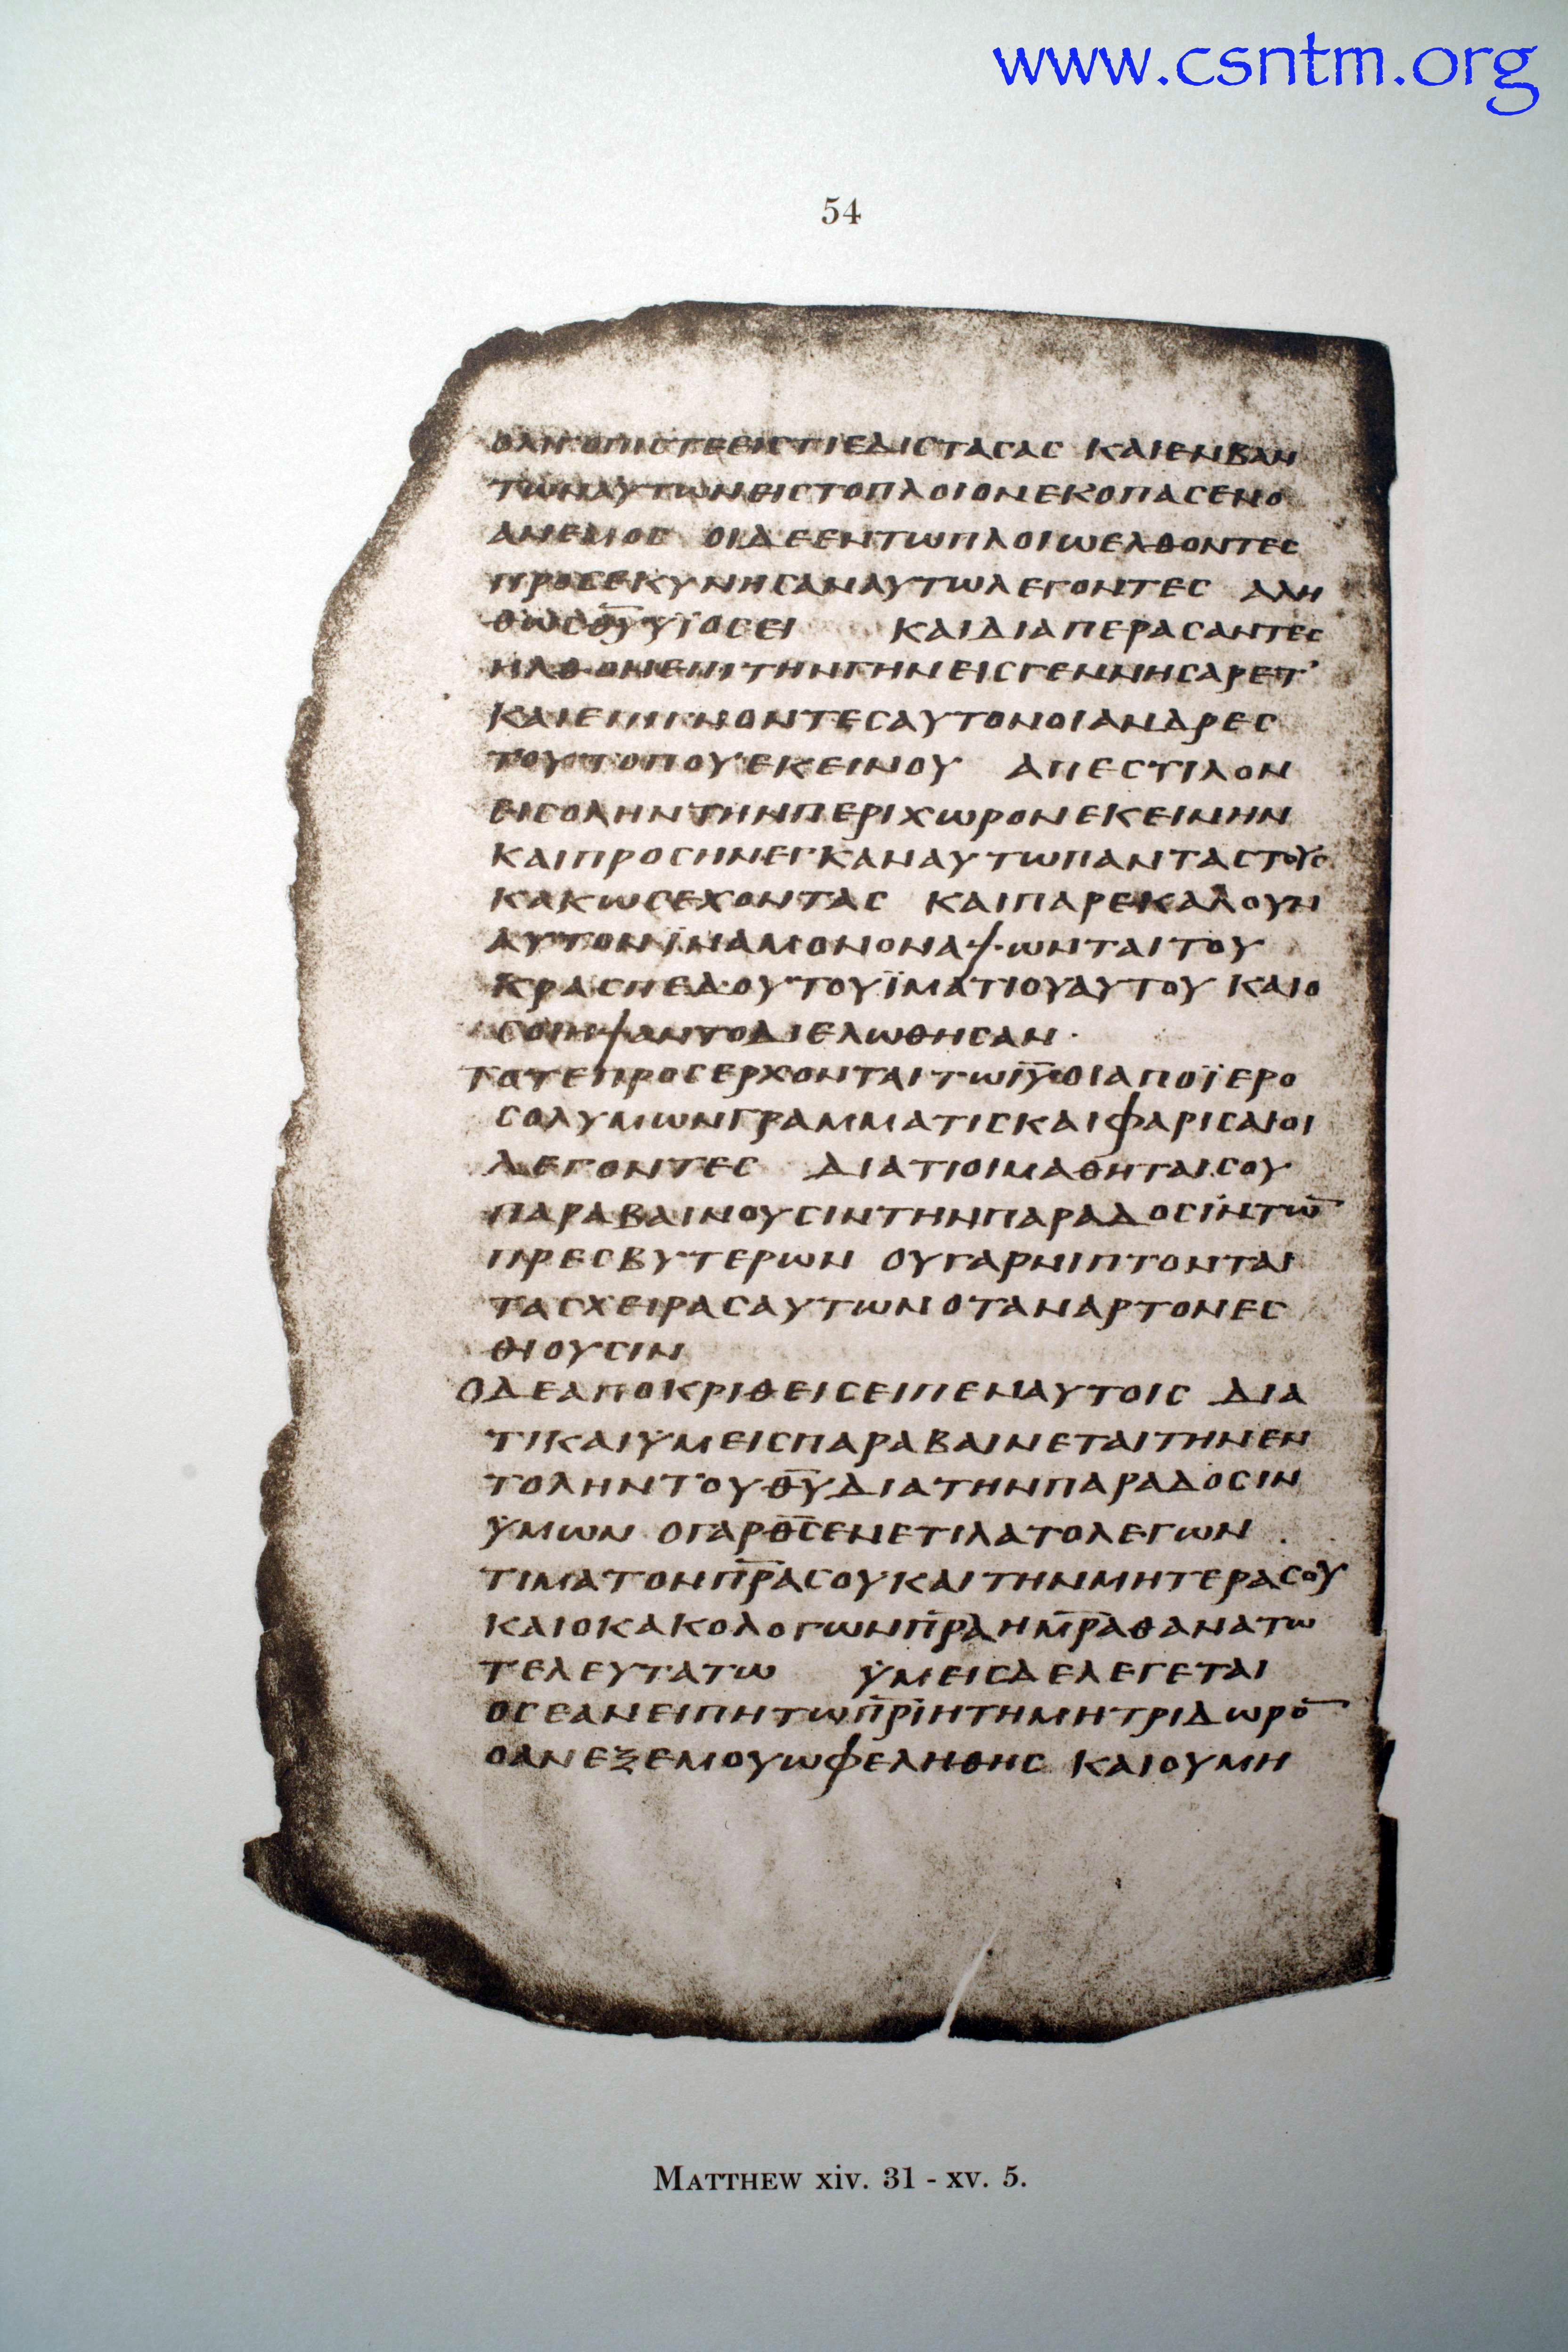 www.csntm.org
54
ΟΛΙΓΟΠΙCΤΕΕΙCΤΙΕΔΙCΤΑCΑC ΚΑΙΕΝΒΑΝ
ΤΩΝΑΥΤΩΝΕΙCΤΟΠΛΟΙΟΝΕΚΟΠΑCΕΝΟ
ΑΝΕΜΟC ΟΙΔΕΕΝΤΩΠΛΟΙΩΕΛΘΟΝΤΕC
ΠΡΟCΕΚΥΝΗCΑΝΑΥΤΩΛΕΓΟΝΤΕC ΑΛΗ
ΘΩCΘ̅Υ̅ΥΪΟCΕΙ ΚΑΙΔΙΑΠΕΡΑCΑΝΤΕC
ΗΛΘΟΝΕΠΙΤΗΝΓΗΝΕΙCΓΕΝΝΗCΑΡΕΤ’
ΚΑΙΕΠΙΓΝΟΝΤΕCΑΥΤΟΝΟΙΑΝΔΡΕC
ΤΟΥΤΟΠΟΥΕΚΕΙΝΟΥ ΑΠΕCΤΙΛΟΝ
ΕΙCΟΛΗΝΤΗΝΠΕΡΙΧΩΡΟΝΕΚΕΙΝΗΝ
ΚΑΙΠΡΟCΗΝΕΓΚΑΝΑΥΤΩΠΑΝΤΑCΤΟΥC
ΚΑΚΩCΕΧΟΝΤΑC ΚΑΙΠΑΡΕΚΑΛΟΥΝ
ΑΥΤΟΝΪΝΑΜΟΝΟΝΑΨΩΝΤΑΙΤΟΥ
ΚΡΑCΠΕΔΟΥΤΟΥΪΜΑΤΙΟΥΑΥΤΟΥ ΚΑΙΟ
CΟΙΗΨΑΝΤΟΔΙΕΛΩΘΗCΑΝ·
ΤΟΤΕΠΡΟCΕΡΧΟΝΤΑΙΤΩΙ̅Υ̅ΟΙΑΠΟΪΕΡΟ
CΟΛΥΜΩΝΓΡΑΜΜΑΤΙCΚΑΙΦΑΡΙCΑΙΟΙ
ΛΕΓΟΝΤΕC ΔΙΑΤΙΟΙΜΑΘΗΤΑΙCΟΥ
ΠΑΡΑΒΑΙΝΟΥCΙΝΤΗΝΠΑΡΑΔΟCΙΝΤΩ̅
ΠΡΕCΒΥΤΕΡΩΝ ΟΥΓΑΡΝΙΠΤΟΝΤΑΙ
ΤΑCΧΕΙΡΑCΑΥΤΩΝΟΤΑΝΑΡΤΟΝΕC
ΘΙΟΥCΙΝ
ΟΔΕΑΠΟΚΡΙΘΕΙCΕΙΠΕΝΑΥΤΟΙC ΔΙΑ
ΤΙΚΑΙΫΜΕΙCΠΑΡΑΒΑΙΝΕΤΑΙΤΗΝΕΝ
ΤΟΛΗΝΤΟΥΘ̅Υ̅ΔΙΑΤΗΝΠΑΡΑΔΟCΙΝ
ΫΜΩΝ ΟΓΑΡΘ̅C̅ΕΝΕΤΙΛΑΤΟΛΕΓΩΝ
ΤΙΜΑΤΟΝΠ̅Ρ̅Α̅CΟΥΚΑΙΤΗΝΜΗΤΕΡΑCΟΥ
ΚΑΙΟΚΑΚΟΛΟΓΩΝΠ̅Ρ̅Α̅ΗΜ̅Ρ̅Α̅ΘΑΝΑΤΩ
ΤΕΛΕΥΤΑΤΩ ΫΜΕΙCΔΕΛΕΓΕΤΑΙ
ΟCΕΑΝΕΙΠΗΤΩΠ̅Ρ̅Ι̅ΗΤΗΜΗΤΡΙΔΩΡΟ̅
ΟΑΝΕΞΕΜΟΥΩΦΕΛΗΘΗC ΚΑΙΟΥΜΗ
MATTHEW xiv. 31 - xv. 5.